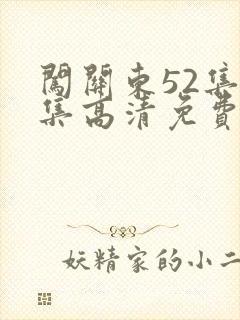 闖關東52集
集高清免費
妖精家的小二